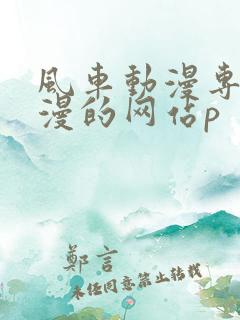 风车動漫专
漫的网佔p
鄭言
未经同意禁止转载